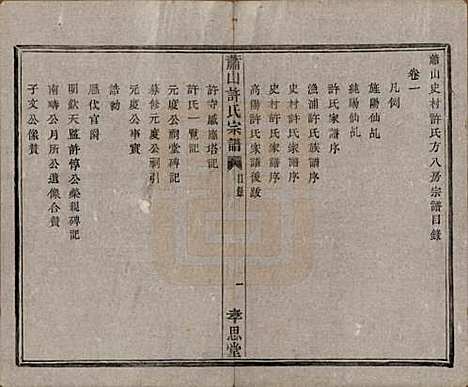 蕭山史村許氏方八房宗譜目錄
卷一
凡例
旌陽仙乩
純陽仙乩
許氏家譜序
漁浦許氏族譜序
史村許氏家譜序
高陽許氏家譜後跋
蕭山許氏宗譜
目錄
一
孝思堂
許寺威塵塔記
許氏一覽記
元度公祠堂記
募修元度公祠引
元度公事實
誥勅
歷代官爵
明欽天監許惇公藥親碑記
南疇公月所公遺像合贊
子文公像贊